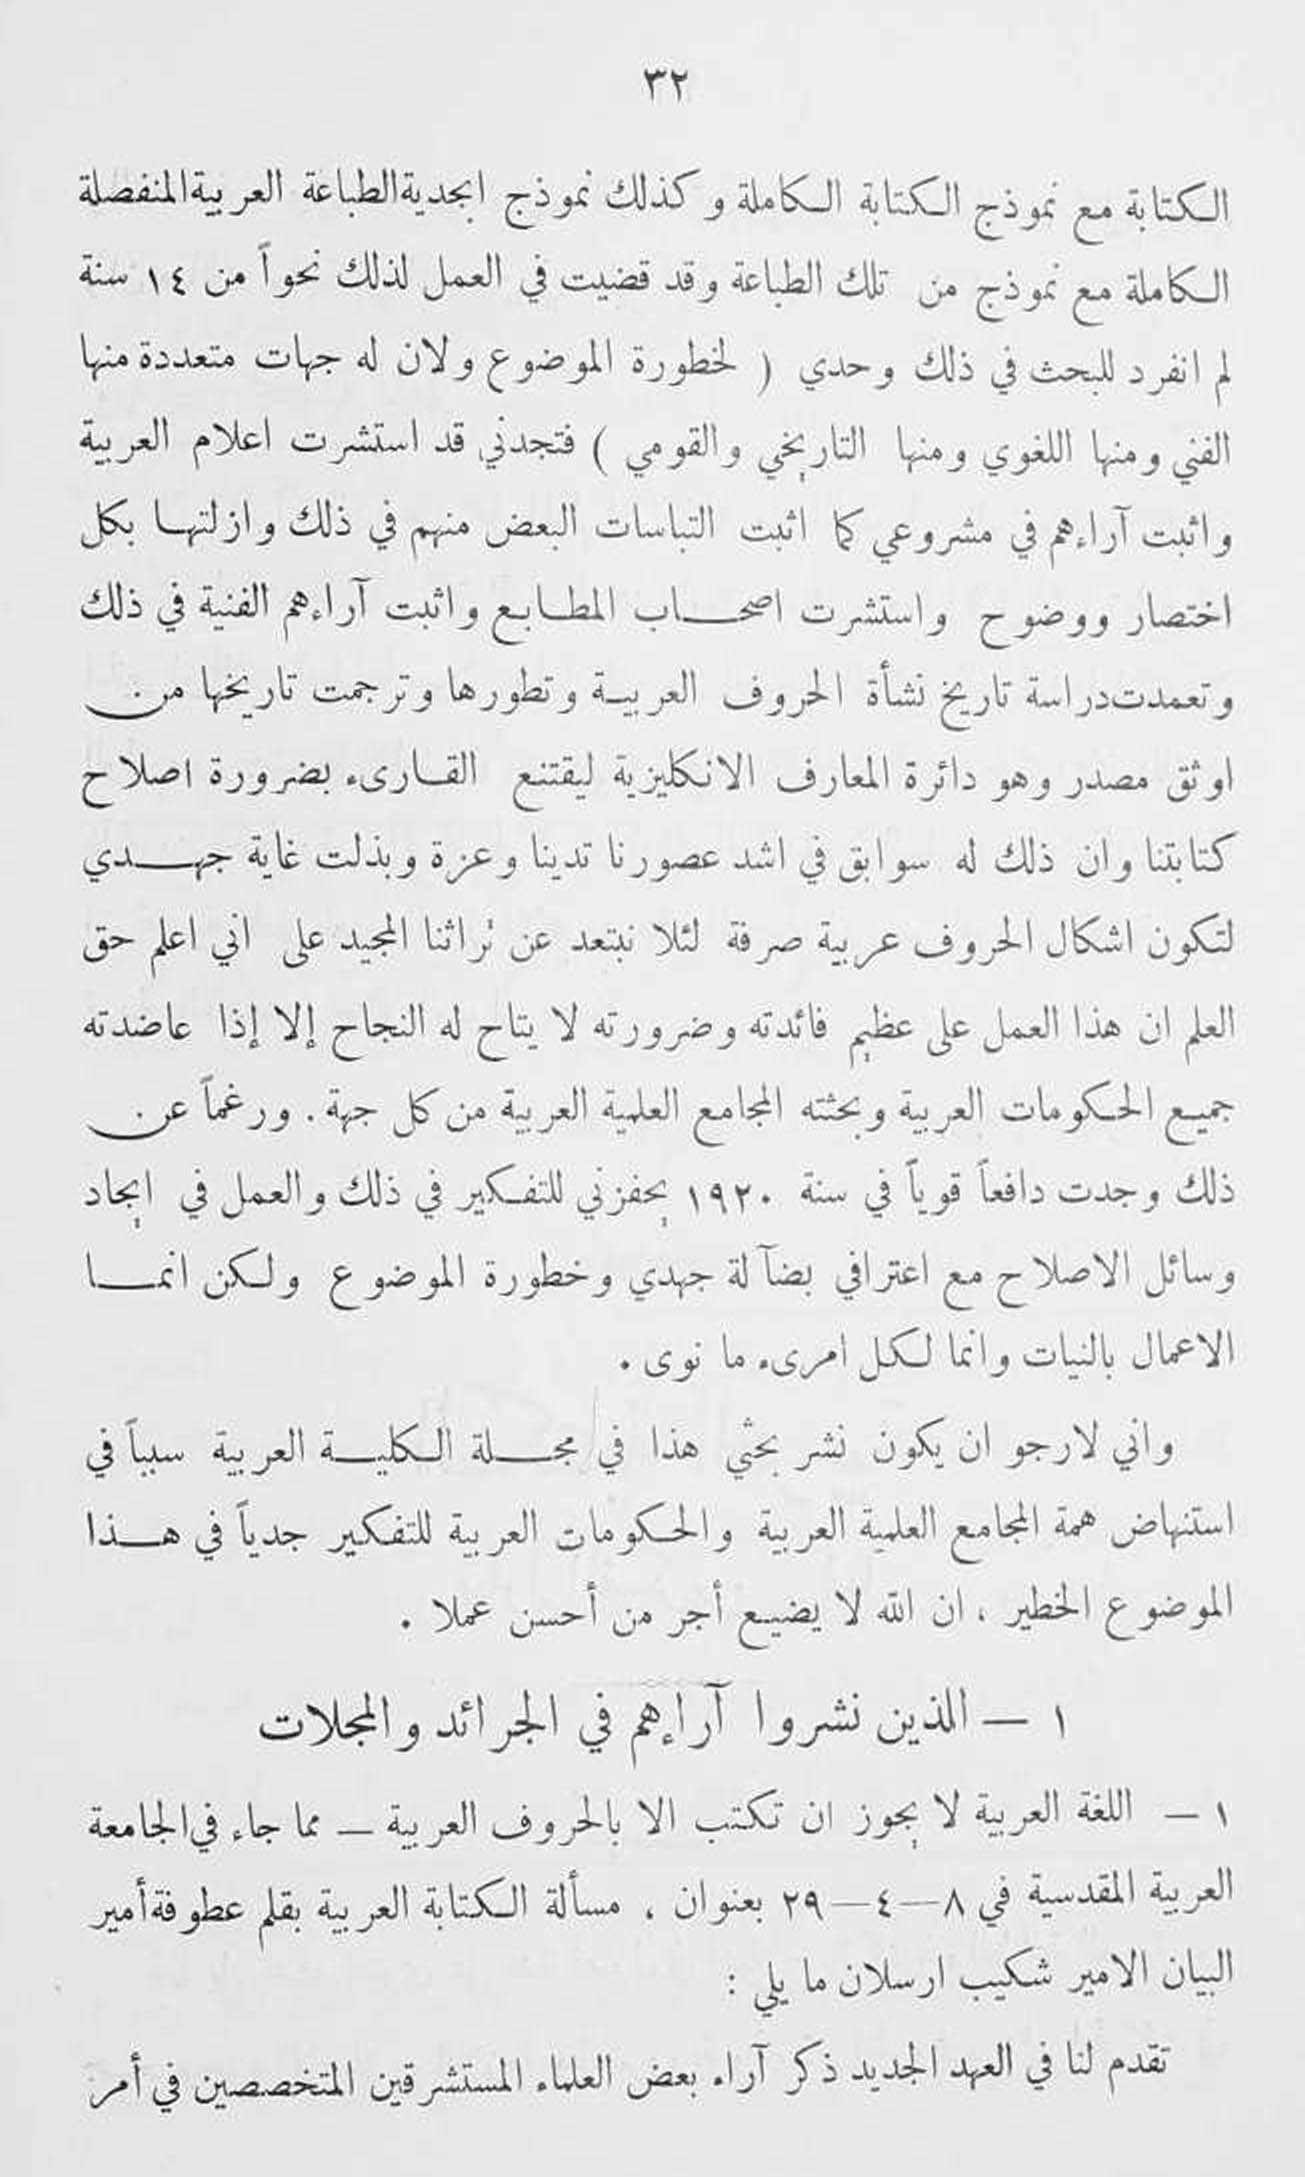 ٣٢
الكتابة مع نموذج الكتابة الكاملة وكذلك نموذج ابجدية الطباعة العربية المنفصلة
الكاملة مع نموذج من تلك الطباعة وقد قضيت في العمل لذلك نحواً من ١٤ سنة
لم انفرد للبحث في ذلك وحدي ( لخطورة الموضوع ولان له جهات متعددة منها
الفني ومنها اللغوي ومنها التاريخي والقومي ) فتجدني قد استشرت اعلام العربية
واثبت آراءهم في مشروعي كما اثبت التباسات البعض منهم في ذلك وازلتها بكل
اختصار ووضوح واستشرت اصحاب المطابع واثبت آراءهم الفنية في ذلك
وتعمدت دراسة تاريخ نشأة الحروف العربية وتطورها وترجمت تاريخها من
اوثق مصدر وهو دائرة المعارف الانكليزية ليقتنع القارىء بضرورة اصلاح
كتابتنا وان ذلك له سوابق في اشد عصورنا تدينا وعزة وبذلت غاية جهدي
لتكون اشكال الحروف عربية صرفة لئلا نبتعد عن تراثنا المجيد على اني اعلم حق
العلم ان هذا العمل على عظيم فائدته وضرورته لا يتاح له النجاح إلا إذا عاضدته
جميع الحكومات العربية وبحثته المجامع العلمية العربية من كل جهة . ورغماً عن
ذلك وجدت دافعاً قوياً في سنة ١٩٢٠ يحفزني للتفكير في ذلك والعمل في ايجاد
وسائل الاصلاح مع اعترافي بضآلة جهدي وخطورة الموضوع ولكن انما
الاعمال بالنيات وانما لكل امرىء ما نوى .
واني لارجو ان يكون نشر بحثي هذا في مجلة الكلية العربية سبباً في
استنهاض همة المجامع العلمية العربية والحكومات العربية للتفكير جدياً في هذا
الموضوع الخطير ، ان الله لا يضيع أجر من أحسن عملا .
١ — الذين نشروا آراءهم في الجرائد والمجلات
١ — اللغة العربية لا يجوز ان تكتب الا بالحروف العربية — مما جاء في الجامعة
العربية المقدسية في ٨—٤—٢٩ بعنوان ، مسألة الكتابة العربية بقلم عطوفة أمير
البيان الامير شكيب ارسلان ما يلي :
تقدم لنا في العهد الجديد ذكر آراء بعض العلماء المستشرقين المتخصصين في أمر